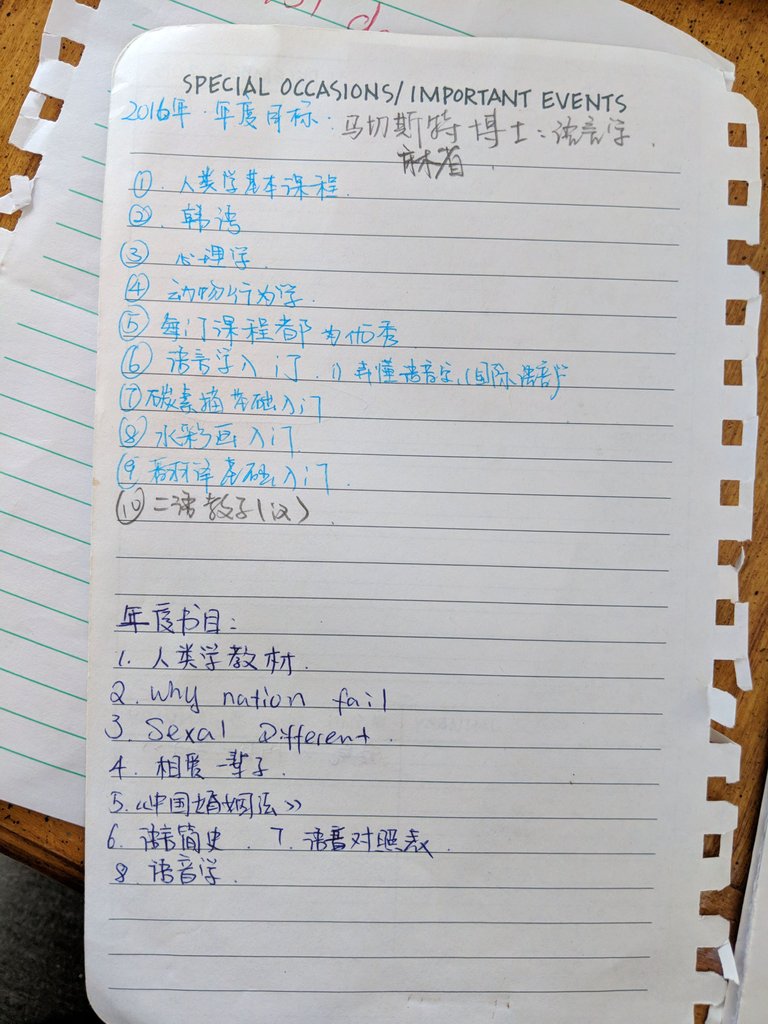 SPECIAL OCCASIONS/IMPORTANT EVENTS
2016年·年度目标: 马切斯特博士:语言学.
麻省
① 人类学基本课程.
②. 韩语
③ 心理学.
④ 动物行为学.
⑤ 每门课程都为优秀
⑥ 语言学入门. 1) 弄懂语音学.(国际语音
⑦ 碳素描基础入门
⑧ 水彩画入门.
⑨ 翻译基础入门.
⑩ 二语教子(汉)
年度书目:
1. 人类学教材.
2. Why nation fail
3. Sexal Different.
4. 相爱一辈子.
5.《中国婚姻法》
6. 语言简史. 7. 语音对照表.
8. 语音学.